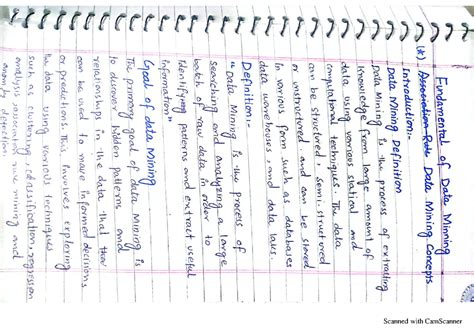 Fundamental of Data Minning
(*) Association Rule Data Mining Concepts
Introduction:-
Data Mining Definition
Data Mining is the process of extracting
knowledge from large amount of
data using various statical and
computational techniques. The data
can be structured, semi-structured
or unstructured, and can be stored
in various form such as databases
data warehouses, and data lakes.
Definition:-
"Data Mining is the process of
searching and analyzing a large
batch of raw data in order to
identifying patterns and extract useful
information"
Goal of data Mining
The primary goal of data Mining is
to discover hidden patterns and
relationships in the data that that
can be used to make informed decisions
or predictions. This involves exploring
the data using various techniques
such as clustering, classification, regression
analysis, association rule mining and
anomaly detection.
Scanned with CamScanner